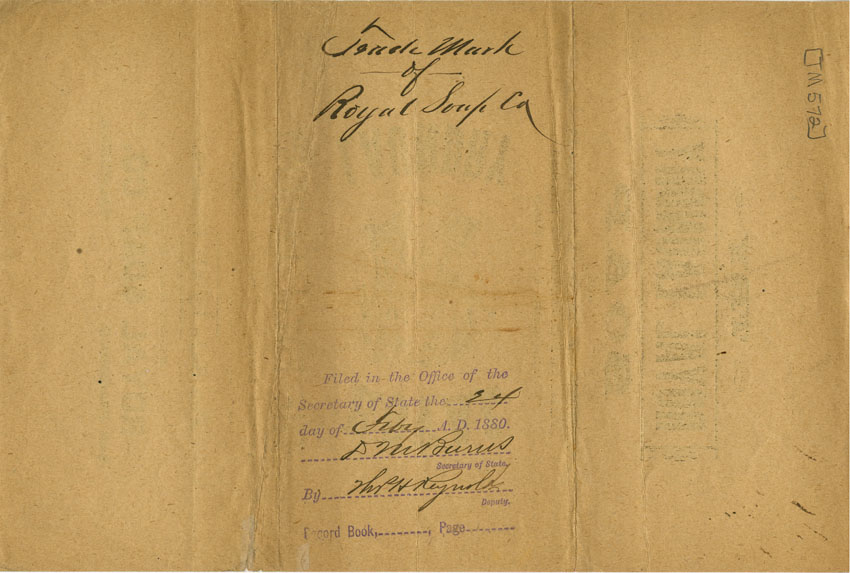 Trade Mark
of
Royal Soap Co
[TM 572]
Filed in the Office of the
Secretary of State the 24
day of Feby A. D. 1880.
D M Burns
Secretary of State
By Thos H Reynolds
Deputy.
Record Book, , Page